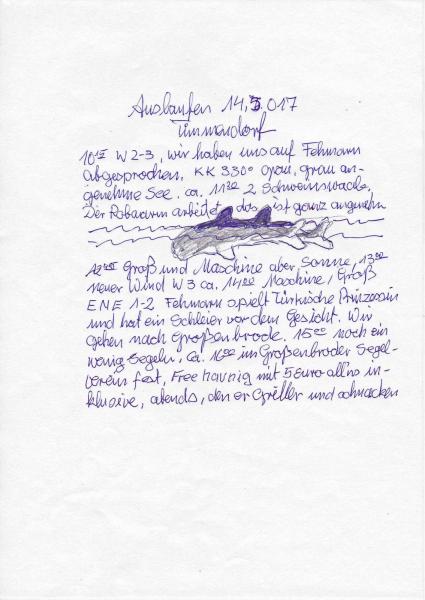 Auslaufen 14.5.017
Timmendorf
10 15 W 2-3, wir haben uns auf Fehmarn
abgesprochen, KK 330° grau, grau an-
genehme See. ca. 11 30 2 Schweinswale,
Der Roboarm arbeitet, das ist ganz angenehm
12 00 Groß und Maschine aber Sonne, 13 00
neuer Wind W 3 ca. 14 00 Maschine, Groß
ENE 1-2 Fehmarn spielt Türkische Prinzessin
und hat ein Schleier vor dem Gesicht. Wir
gehen nach Großenbrode. 15 00 noch ein
wenig Segeln, ca. 16 00 im Großenbroder Segel-
verein fest, Free mit 5 Euro alles in-
klusive, abends, Griller und schnacken